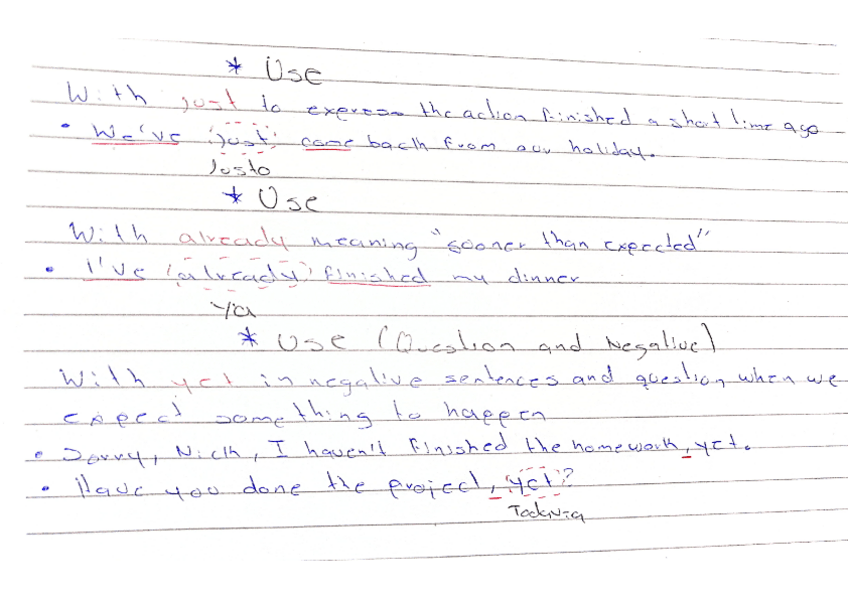 * Use
With just to express the action finished a short time ago
• We've just come back from our holiday.
Justo
* Use
With already meaning "sooner than expected"
• I've already finished my dinner
Ya
* Use (Question and Negative)
With yet in negative sentences and question when we
expect something to happen
• Sorry, Nick, I haven't finished the homework, yet.
• Have you done the project, yet?
Todavia